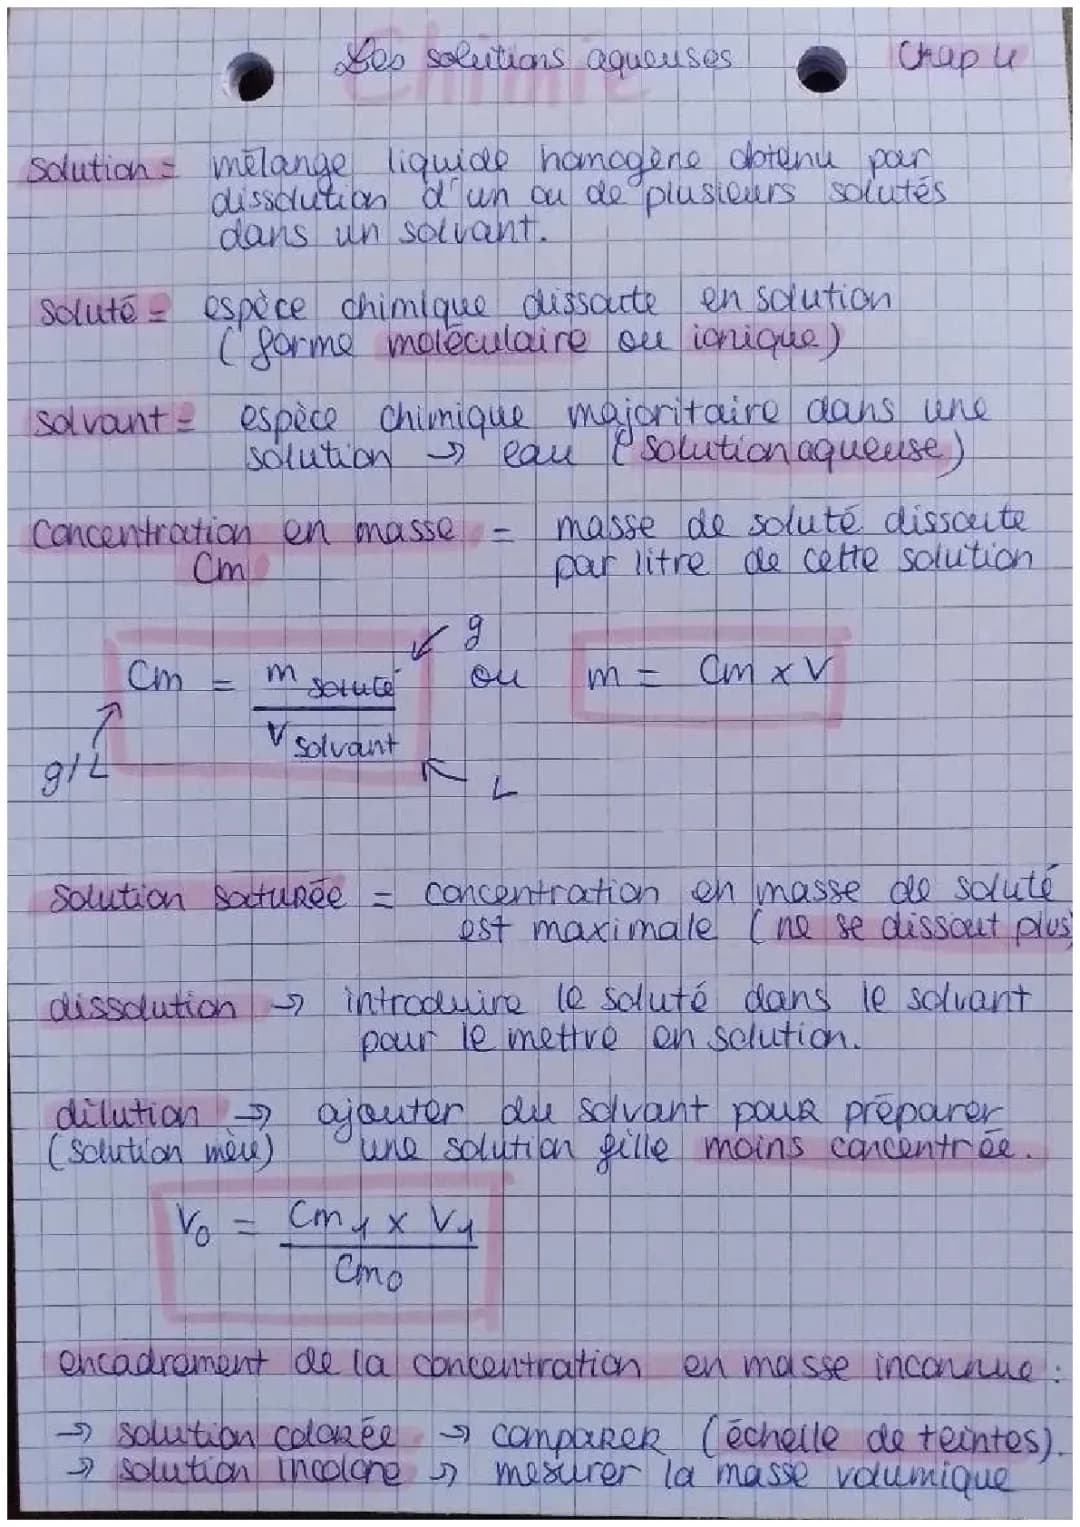 Chimie
Les solutions aqueuses Chap 4
Solution = mélange liquide homogène obtenu par
dissolution d'un ou de plusieurs solutés
dans un solvant.
Soluté = espèce chimique dissoute en solution
(forme moléculaire ou ionique)
Solvant = espèce chimique majoritaire dans une
solution → eau (solution aqueuse)
Concentration en masse = masse de soluté dissoute
Cm par litre de cette solution
Cm = m soluté / V solvant g ou m = Cm x V
g/L L
Solution saturée = concentration en masse de soluté
est maximale (ne se dissout plus)
dissolution → introduire le soluté dans le solvant
pour le mettre en solution.
dilution → ajouter du solvant pour préparer
(solution mère) une solution fille moins concentrée.
V0 = Cm1 x V1 / Cm0
encadrement de la concentration en masse inconnue :
→ solution colorée → comparer (échelle de teintes).
→ solution incolore → mesurer la masse volumique